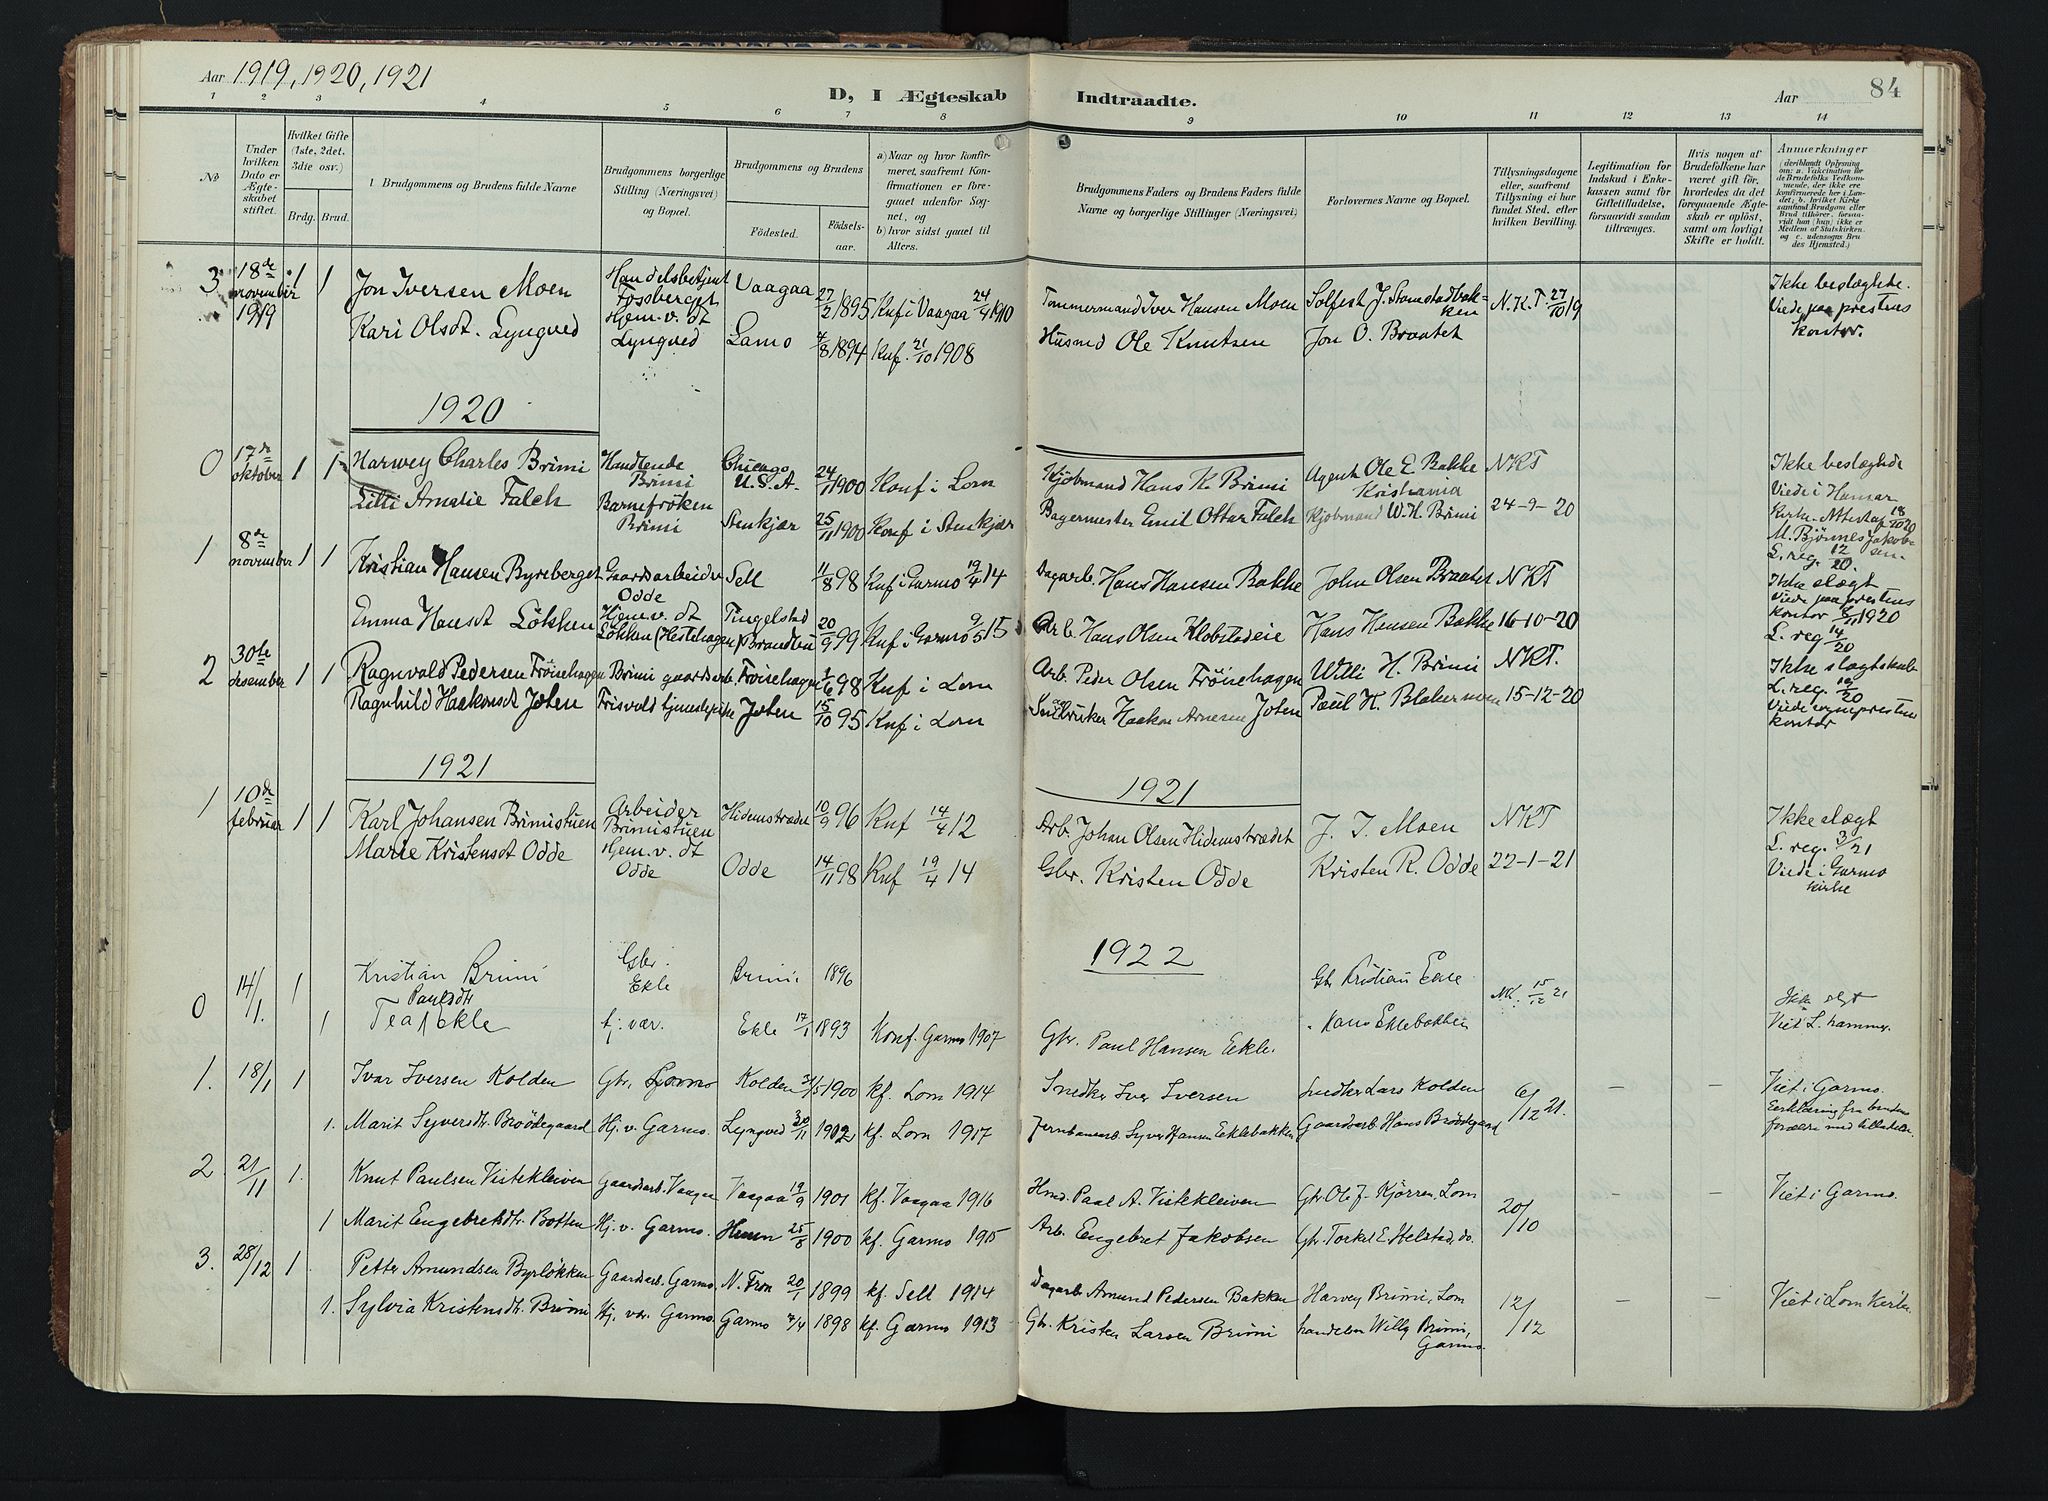 Aar 1919, 1920, 1921
D, I Ægteskab Indtraadte.
Aar
84
1 2 3 4 5 6 7 8 9 10 11 12 13 14
No
Under hvilken Dato er Ægteskabet stiftet.
Hvilket Gifte (1ste, 2det, 3die osv.)
Brdg. Brud.
Brudgommens og Brudens fulde Navne
Brudgommens borgerlige Stilling (Næringsvei) og Bopæl.
Brudgommens og Brudens
Fødested.
Fødselsaar.
a) Naar og hvor Konfirmeret, saafremt Konfirmationen er foregaaet udenfor Sognet, og
b) hvor sidst gaaet til Alters.
Brudgommens Faders og Brudens Faders fulde Navne og borgerlige Stillinger (Næringsvei)
Forlovernes Navne og Bopæl.
Tillysningsdagene eller, saafremt Tillysning ei har fundet Sted, efter hvilken Bevilling.
Legitimation for Indskud i Enkekassen samt for Giftetilladelse, forsaavidt saadan tiltrænges.
Hvis nogen af Brudefolkene har været gift før, hvorledes da det foregaaende Ægteskab er opløst, samt om lovligt Skifte er holdt.
Anmerkninger
3 18de november 1919 1 1 Jon Iversen Moen Handelsbetjent Fossberget Vaagaa 27/2 1895 Knf i Vaagaa 24/4 1910 Tømmermand Iver Hansen Moen Solfest J. Stamstadbakken N.K.T. 27/10 19 Ikke beslægtede. Viede paa prestens kontor.
Kari Olsdt. Lyngved Hjem. v. dt Lyngved Lomo 4/8 1894 Knf. 21/10 1908 Husmd Ole Knutsen Jon O. Braatet
1920
0 17de oktober 1 1 Harwey Charles Brimi Handlende Brimi Chicago U.S.A. 24/11 1900 Konf i Lom Kjøbmand Hans K. Brimi Agent Ole E. Bakke Kristiania NKT Ikke beslegtede
Lilli Amalie Falch Barnefrøken Brimi Stenkjær 25/11 1900 Konf i Stenkjær Bagermester Emil Ottar Falch Kjøbmand W. H. Brimi 24-9-20 Viede i Hamar Kirke. Attest af 18/10 20 M. Bjønnes Jakobsen. L. reg. 12/20.
1 8de november 1 1 Kristian Hansen Byreberget Gaardsarbeider Odde Sell 11/8 98 Knf i Garmo 19/4 14 Dagarb. Hans Hansen Bakke John Olsen Braatet NKT Ikke slægt Viede paa prestens kontor 8/11 1920
Emma Hansdt Løkken Hjem. v. dt Løkken (Hestehagen) Tingelstad Brandbu 20/9 99 Knf i Garmo 9/5 15 Arb. Hans Olsen Klobstadeie Hans Hansen Bakke 16-10-20 L. reg 14/20
2 30te desember 1 1 Ragnvald Pedersen Frøisehagen Brimi gaardsarb. Frøisehagen 1/6 98 Knf i Lom Arb. Peder Olsen Frøisehagen Willi H. Brimi NKT. Ikke slægtskab L. reg. 19/20
Ragnhild Haakonsdt Joten Frisvold tjenestepike Joten 15/10 95 Knf i Lom Haakon Arnesen Joten Paul H. Blakar 15-12-20 Viede kontor
1921
1921
1 10de februar 1 1 Karl Johansen Brimistuen Arbeider Brimistuen Hidemstrædet 10/9 96 Knf 14/4 12 Arb. Johan Olsen Hidemstrædet J. I. Moen NKT Ikke slægt L. reg. 3/21
Marie Kristensdt Odde Hjem. v. dt Odde Odde 14/11 98 Knf 19/4 14 Gbr. Kristen Odde Kristen R. Odde 22-1-21 Viede i Garmo kirke
1922
0 14/1. 1 Kristian Brimi Gbr. Ekle Brimi 1896 Gb. Kristian Ekle NK. 15/12 21 Ikke slgt
1 Tea Paulsdtr Ekle tj. vær. Ekle 17/1 1893 Konf. Garmo 1907 Gbr. Paul Hansen Ekle. Hans Eklebakken Viet L. hammer.
1. 18/1 1 Ivar Iversen Kolden Gbr. Garmo Kolden 31/5 1900 kf. Lom 1914 Snedker Iver Iversen Snedker Lars Kolden 6/12 21. – – Viet i Garmo.
1. Marit Syversdtr. Brødegaard Hj. v. Garmo. Lyngved 30/11 1902 kf. Lom 1917 Jernbanearb. Syver Hansen Eklebakken Gaardsarb. Hans Brødegaard Erklæring fra brudens forældre med tilladelse.
2 21/11 1. Knut Paulsen Vistekleiven Gaardsarb. Vaagaa Vaagaa 19/9 1901 kf. Vaagaa 1916 Hmd. Paal A. Vistekleiven Gbr Ole J. Kjørren, Lom 20/10 – – Viet i Garmo.
1 Marit Engebretsdtr. Botten Hj. v. Garmo. 25/8 1900 kf. Garmo 1915 Arb. Engebret Jakobsen Gbr Torkel E. Helstad, do.
3. 28/12 1. Petter Amundsen Byrløkken Gaardsarb. Garmo N. Fron 20/1 1899 kf. Sell 1914 Dagarb. Amund Pedersen Bakken Harvey Brimi, Lom 12/12 – – Viet i Lom Kirke.
1. Sylvia Kristensdtr. Brimi Hj. vær. Garmo. Garmo 7/4 1898 kf. Garmo 1913 Gb. Kristen Larsen Brimi handelsm Willy Brimi, Garmo.